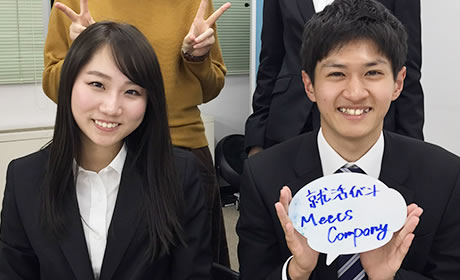 就活イベント
Meets
Company